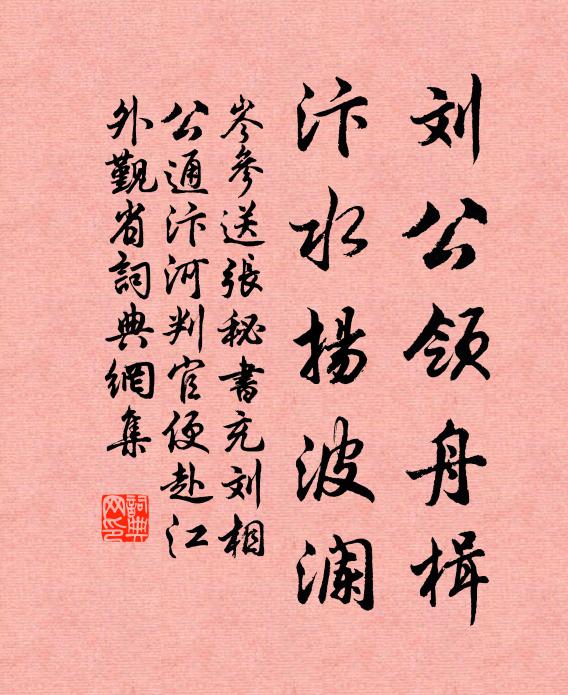 刘公领舟楫
汴水揚波澜
岑參送張秘書充刘相
公通汴河判官便赴江
外觐省詞典網集
詞典网印